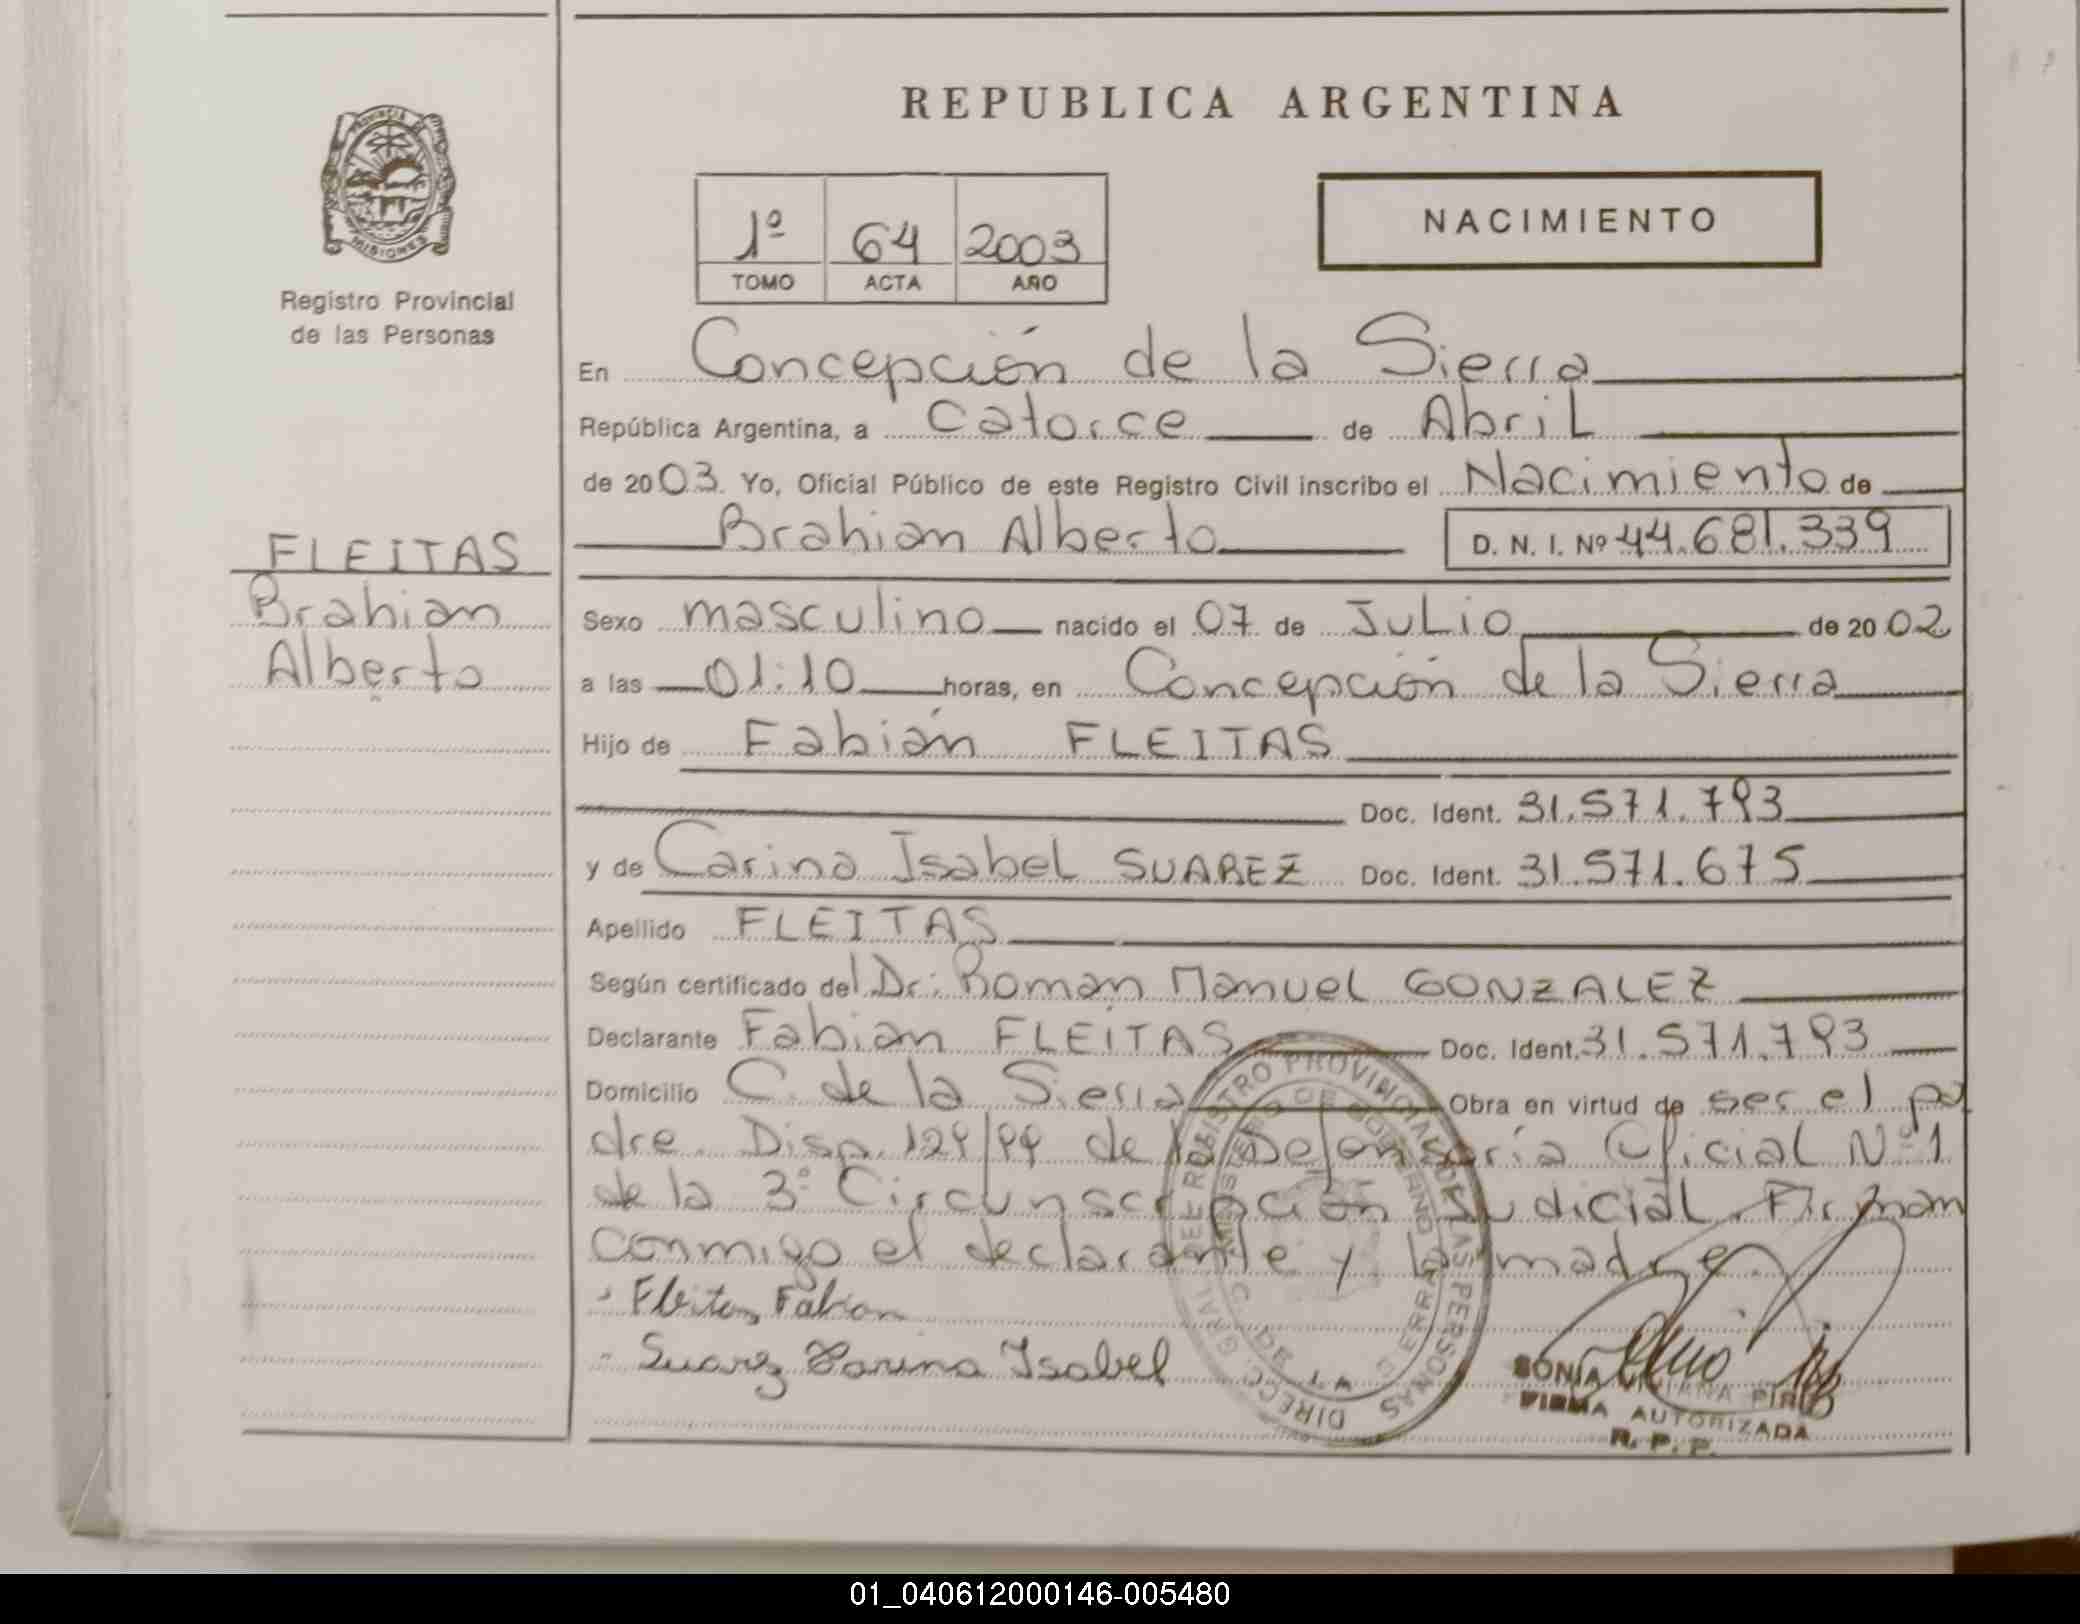 REPUBLICA ARGENTINA
PROVINCIA DE
MISIONES
Registro Provincial
de las Personas
1º 64 2003
TOMO ACTA AÑO
NACIMIENTO
En Concepción de la Sierra
República Argentina, a Catorce de Abril
de 2003. Yo, Oficial Público de este Registro Civil inscribo el Nacimiento de
Brahian Alberto D. N. I. Nº 44.681.339
FLEITAS
Brahian
Alberto
Sexo masculino nacido el 07 de Julio de 2002
a las 01:10 horas, en Concepción de la Sierra
Hijo de Fabián FLEITAS
Doc. Ident. 31.571.793
y de Carina Isabel SUAREZ Doc. Ident. 31.571.675
Apellido FLEITAS
Según certificado del Dr: Roman Manuel GONZALEZ
Declarante Fabian FLEITAS Doc. Ident. 31.571.793
Domicilio C. de la Sierra Obra en virtud de ser el pa
dre. Disp. de la Defensoría Oficial Nº 1
de la 3º Circunscripción Judicial. Firman
conmigo el declarante y la madre.
Fleitas, Fabian
Suarez Karina Isabel
DIRECC. GRAL DEL REGISTRO PROVINCIAL DE LAS PERSONAS
SONIA VIVIANA
FIRMA AUTORIZADA
R. P. P.
01_040612000146-005480